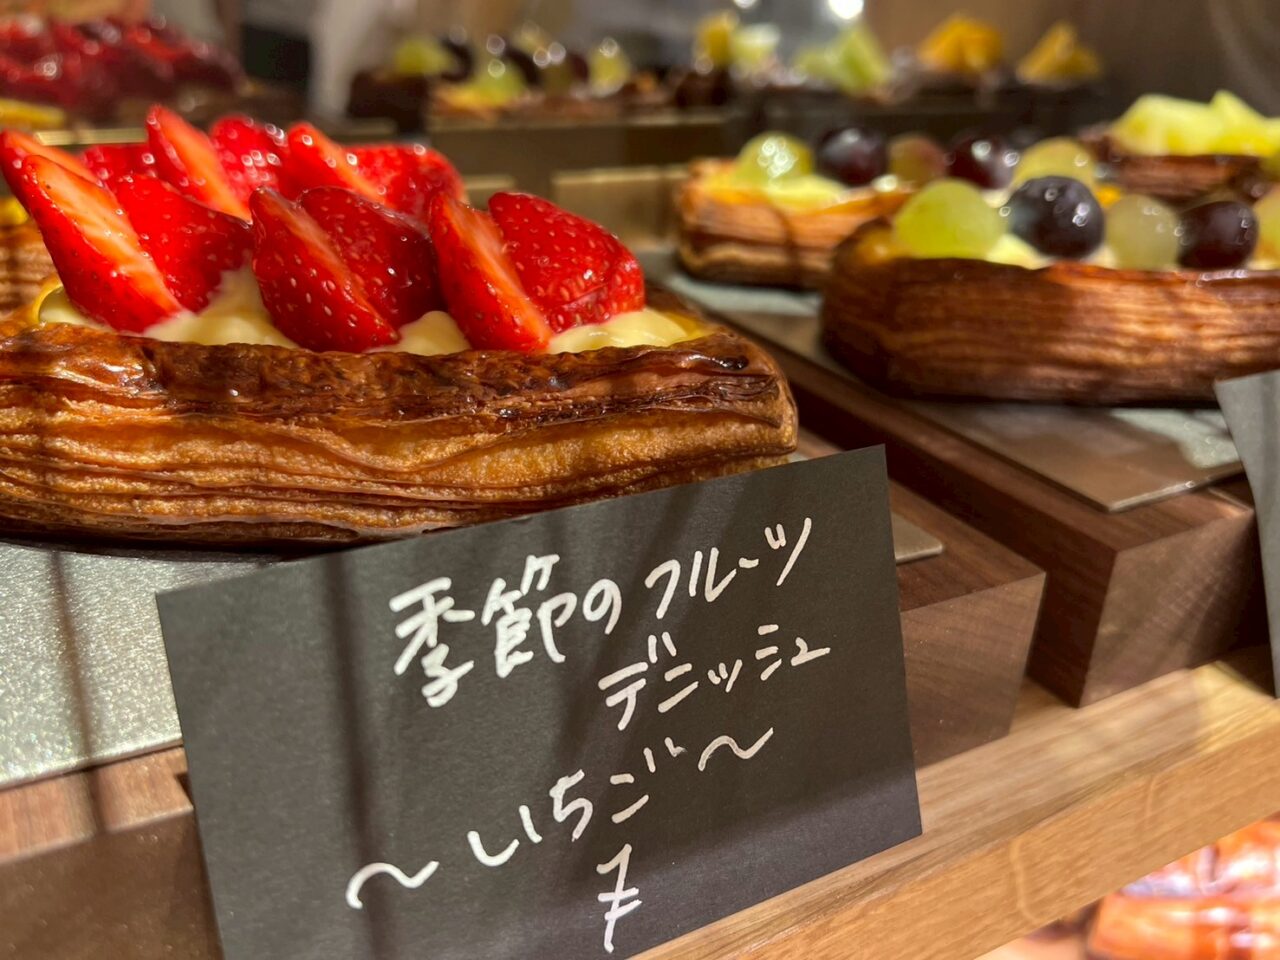 季節のフルーツ
デニッシュ
～いちご～